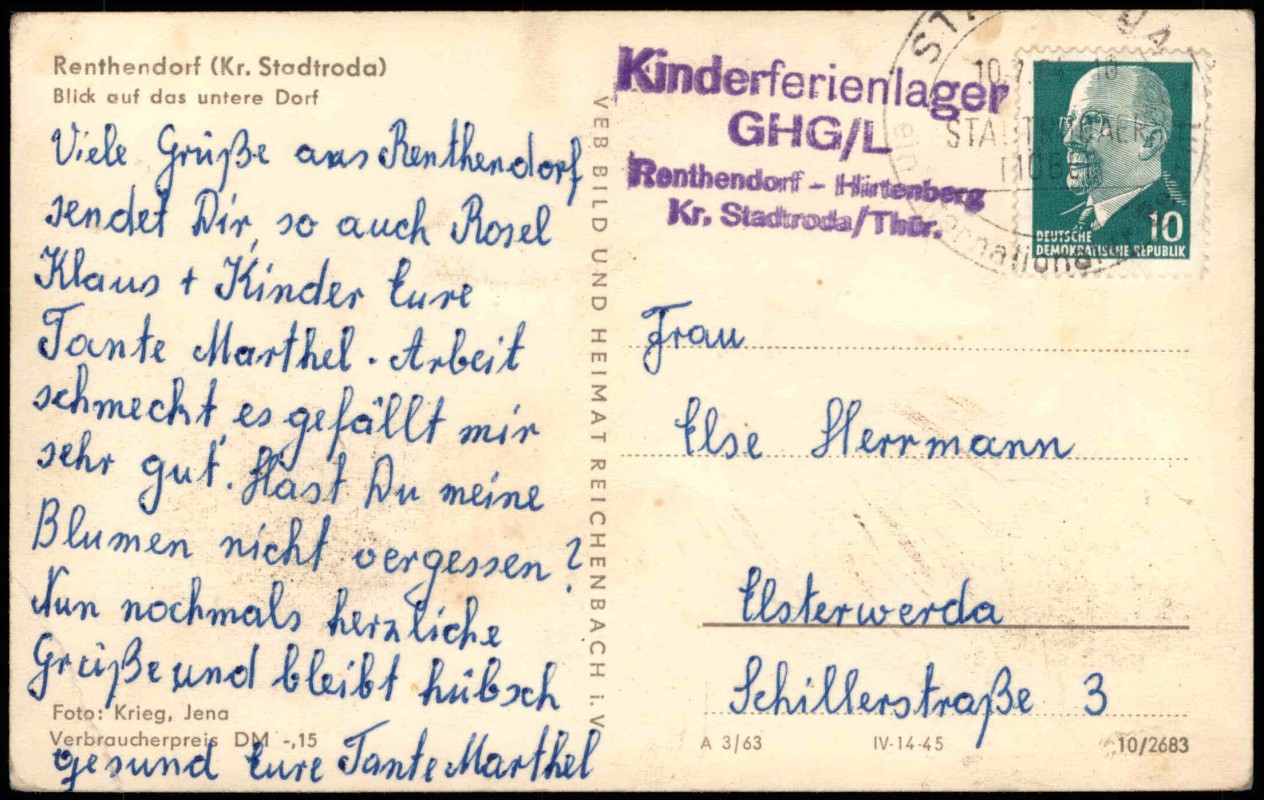 Renthendorf (Kr. Stadtroda)
Blick auf das untere Dorf
Viele Grüße aus Renthendorf
sendet Dir, so auch Rosel
Klaus + Kinder Eure
Tante Marthel. Arbeit
schmeckt, es gefällt mir
sehr gut. Hast Du meine
Blumen nicht vergessen?
Nun nochmals herzliche
Grüße und bleibt hübsch
gesund Eure Tante Marthel
Foto: Krieg, Jena
Verbraucherpreis DM -,15
VEB BILD UND HEIMAT REICHENBACH i. V.
Kinderferienlager
GHG/L
Renthendorf - Hirtenberg
Kr. Stadtroda/Thür.
10
DEUTSCHE
DEMOKRATISCHE REPUBLIK
Frau
Else Herrmann
Elsterwerda
Schillerstraße 3
A 3/63 IV-14-45 10/2683